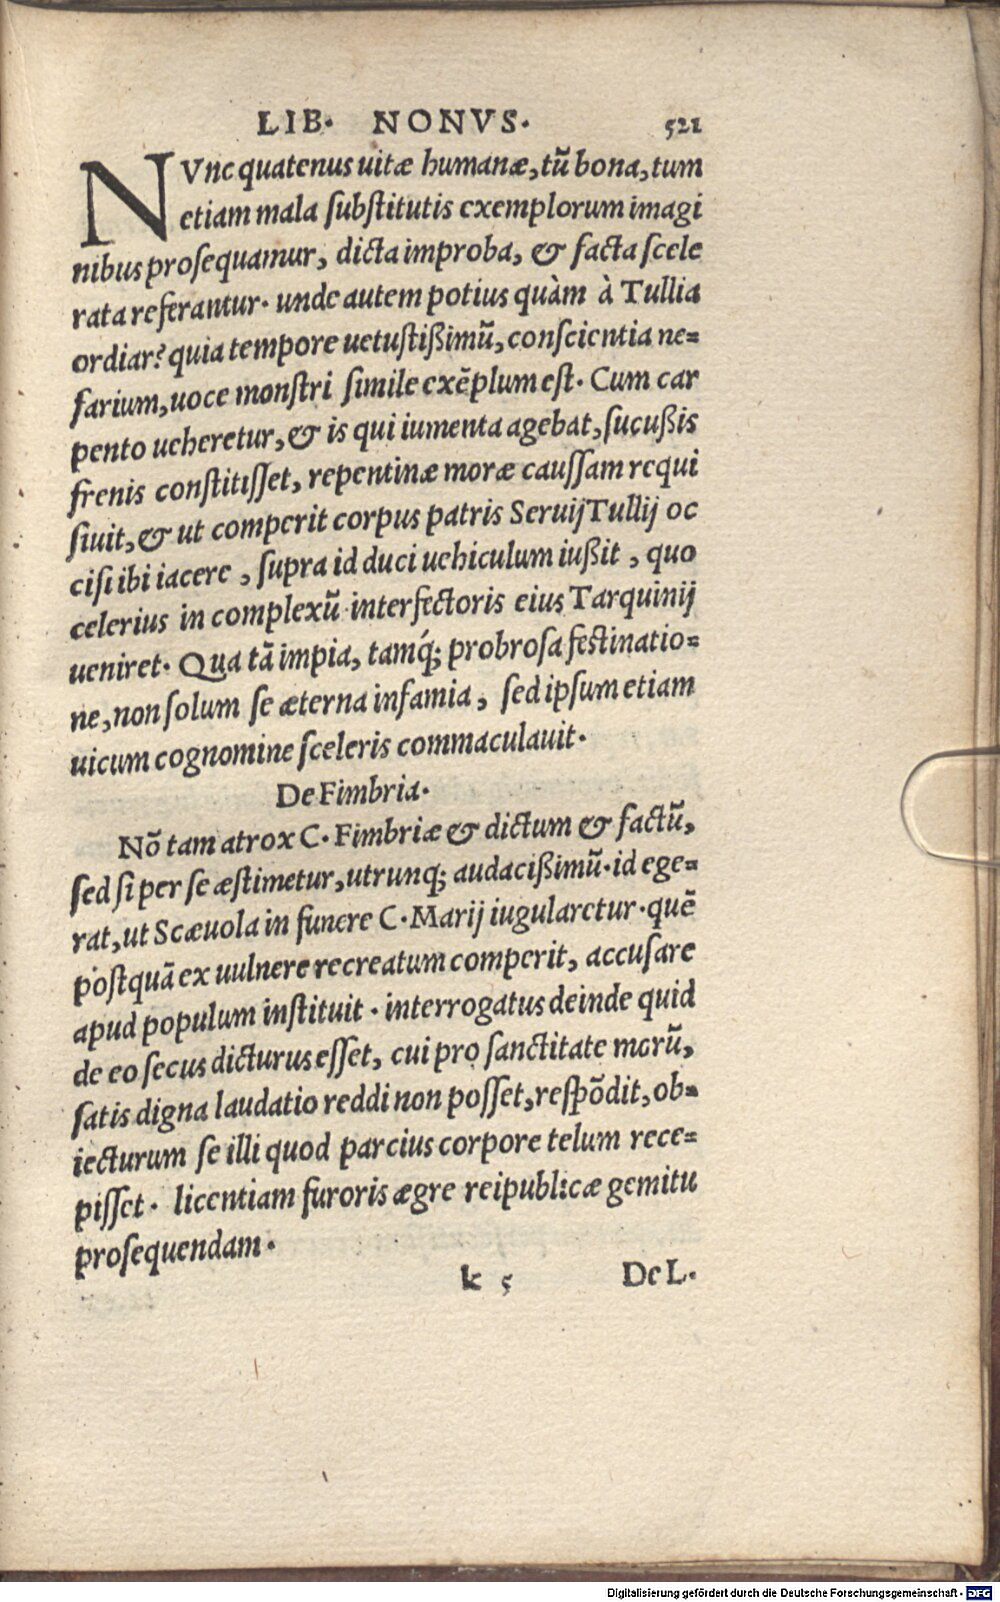 LIB. NONVS. 521
NVnc quatenus uitæ humanæ, tū bona, tum
etiam mala substitutis exemplorum imagi
nibus prosequamur, dicta improba, & facta scele
rata referantur. unde autem potius quàm à Tullia
ordiar? quia tempore uetustißimū, conscientia ne=
farium, uoce monstri simile exēplum est. Cum car
pento ueheretur, & is qui iumenta agebat, sucußis
frenis constitisset, repentinæ moræ caussam requi
siuit, & ut comperit corpus patris Seruij Tullij oc
cisi ibi iacere, supra id duci uehiculum iußit, quo
celerius in complexū interfectoris eius Tarquinij
ueniret. Qua tā impia, tamq́; probrosa festinatio=
ne, non solum se æterna infamia, sed ipsum etiam
uicum cognomine sceleris commaculauit.
De Fimbria.
Nō tam atrox C. Fimbriæ & dictum & factū,
sed si per se æstimetur, utrunq; audacißimū. id ege=
rat, ut Scæuola in funere C. Marij iugularetur. quē
postquā ex uulnere recreatum comperit, accusare
apud populum instituit. interrogatus deinde quid
de eo secus dicturus esset, cui pro sanctitate morū,
satis digna laudatio reddi non posset, respōdit, ob=
iecturum se illi quod parcius corpore telum rece=
pisset. licentiam furoris ægre reipublicæ gemitu
prosequendam.
k 5 De L.
Digitalisierung gefördert durch die Deutsche Forschungsgemeinschaft - DFG